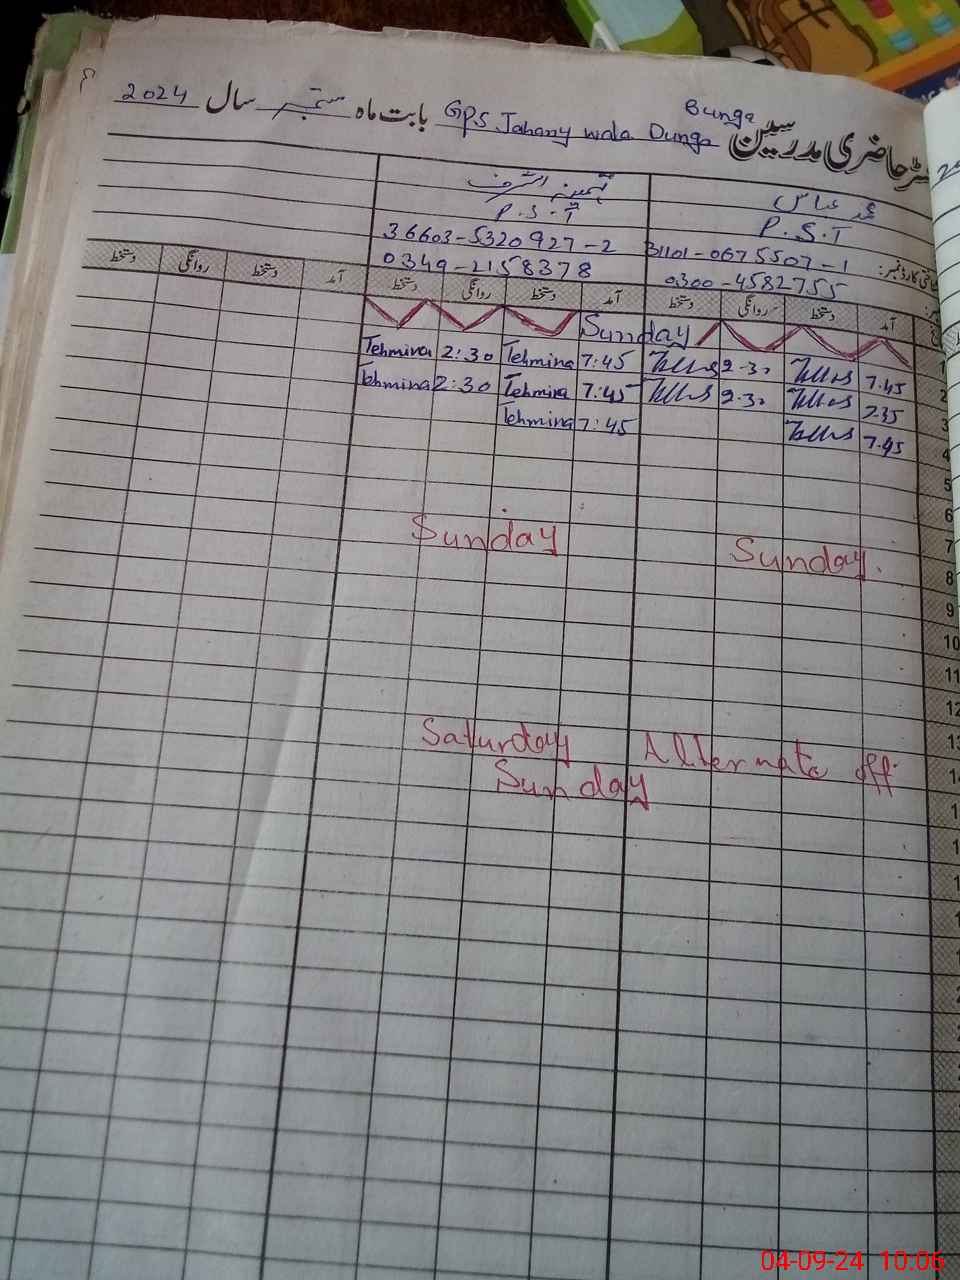 Bunga
رجسٹر حاضری مدرسین GPS Jahany wala Dunga بابت ماہ ستمبر سال 2024
محمد عباس
P.S.T
31101-0675507-1
0300-4582755
تہمینہ اشرف
P.S.T
36603-5320927-2
0349-2158378
آمد دستخط روانگی دستخط آمد دستخط روانگی دستخط آمد دستخط روانگی دستخط
1 Sunday
2 7.45 2.30 7:45 Tehmina 2:30 Tehmina
3 7.35 2.30 7:45 Tehmina 2:30 Tehmina
4 7.45 7:45 Tehmina
5
6
7
8 Sunday. Sunday
9
10
11
12
13
14 Saturday Alternate off
Sunday
04-09-24 10:06